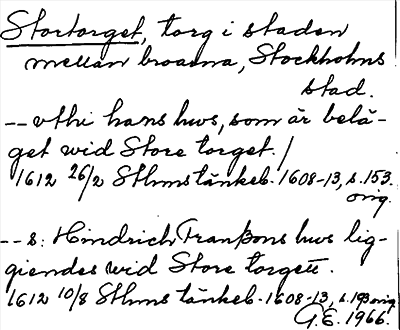 Stortorget, torg i staden
mellan broarna, Stockholms
stad.
-- vthi hans hws, som är belä-
get wid Store torget./
1612 26/2 Sthms tänkeb. 1608-13, s. 153.
orig.
-- s: Hindrich Franßons hws lig-
giendes wid Store torgett.
1612 10/8 Sthms tänkeb. 1608-13, s. 193 orig.
G.E. 1966.